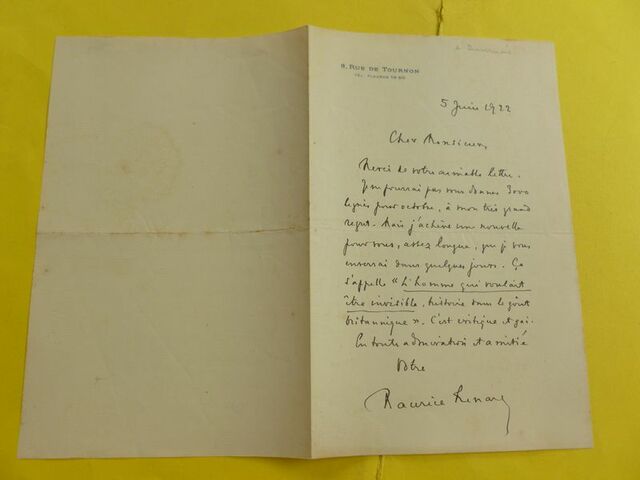 8, RUE DE TOURNON
TÉL. FLEURUS
5 Juin 1922
Cher Monsieur,
Merci de votre aimable lettre.
Je ne pourrai pas vous donner 3000
lignes pour octobre, à mon très grand
regret. Mais j'achève une nouvelle
pour vous, assez longue, que je vous
enverrai dans quelques jours. Ça
s'appelle "L'homme qui voulait
être invisible, histoire dans le goût
britannique". C'est critique et gai.
En toute admiration et amitié
Votre
Maurice Renard